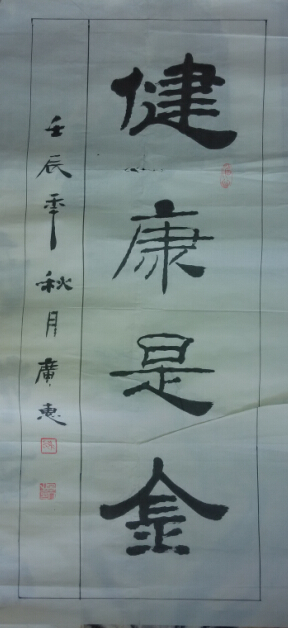 健康是金
壬辰年秋月廣惠